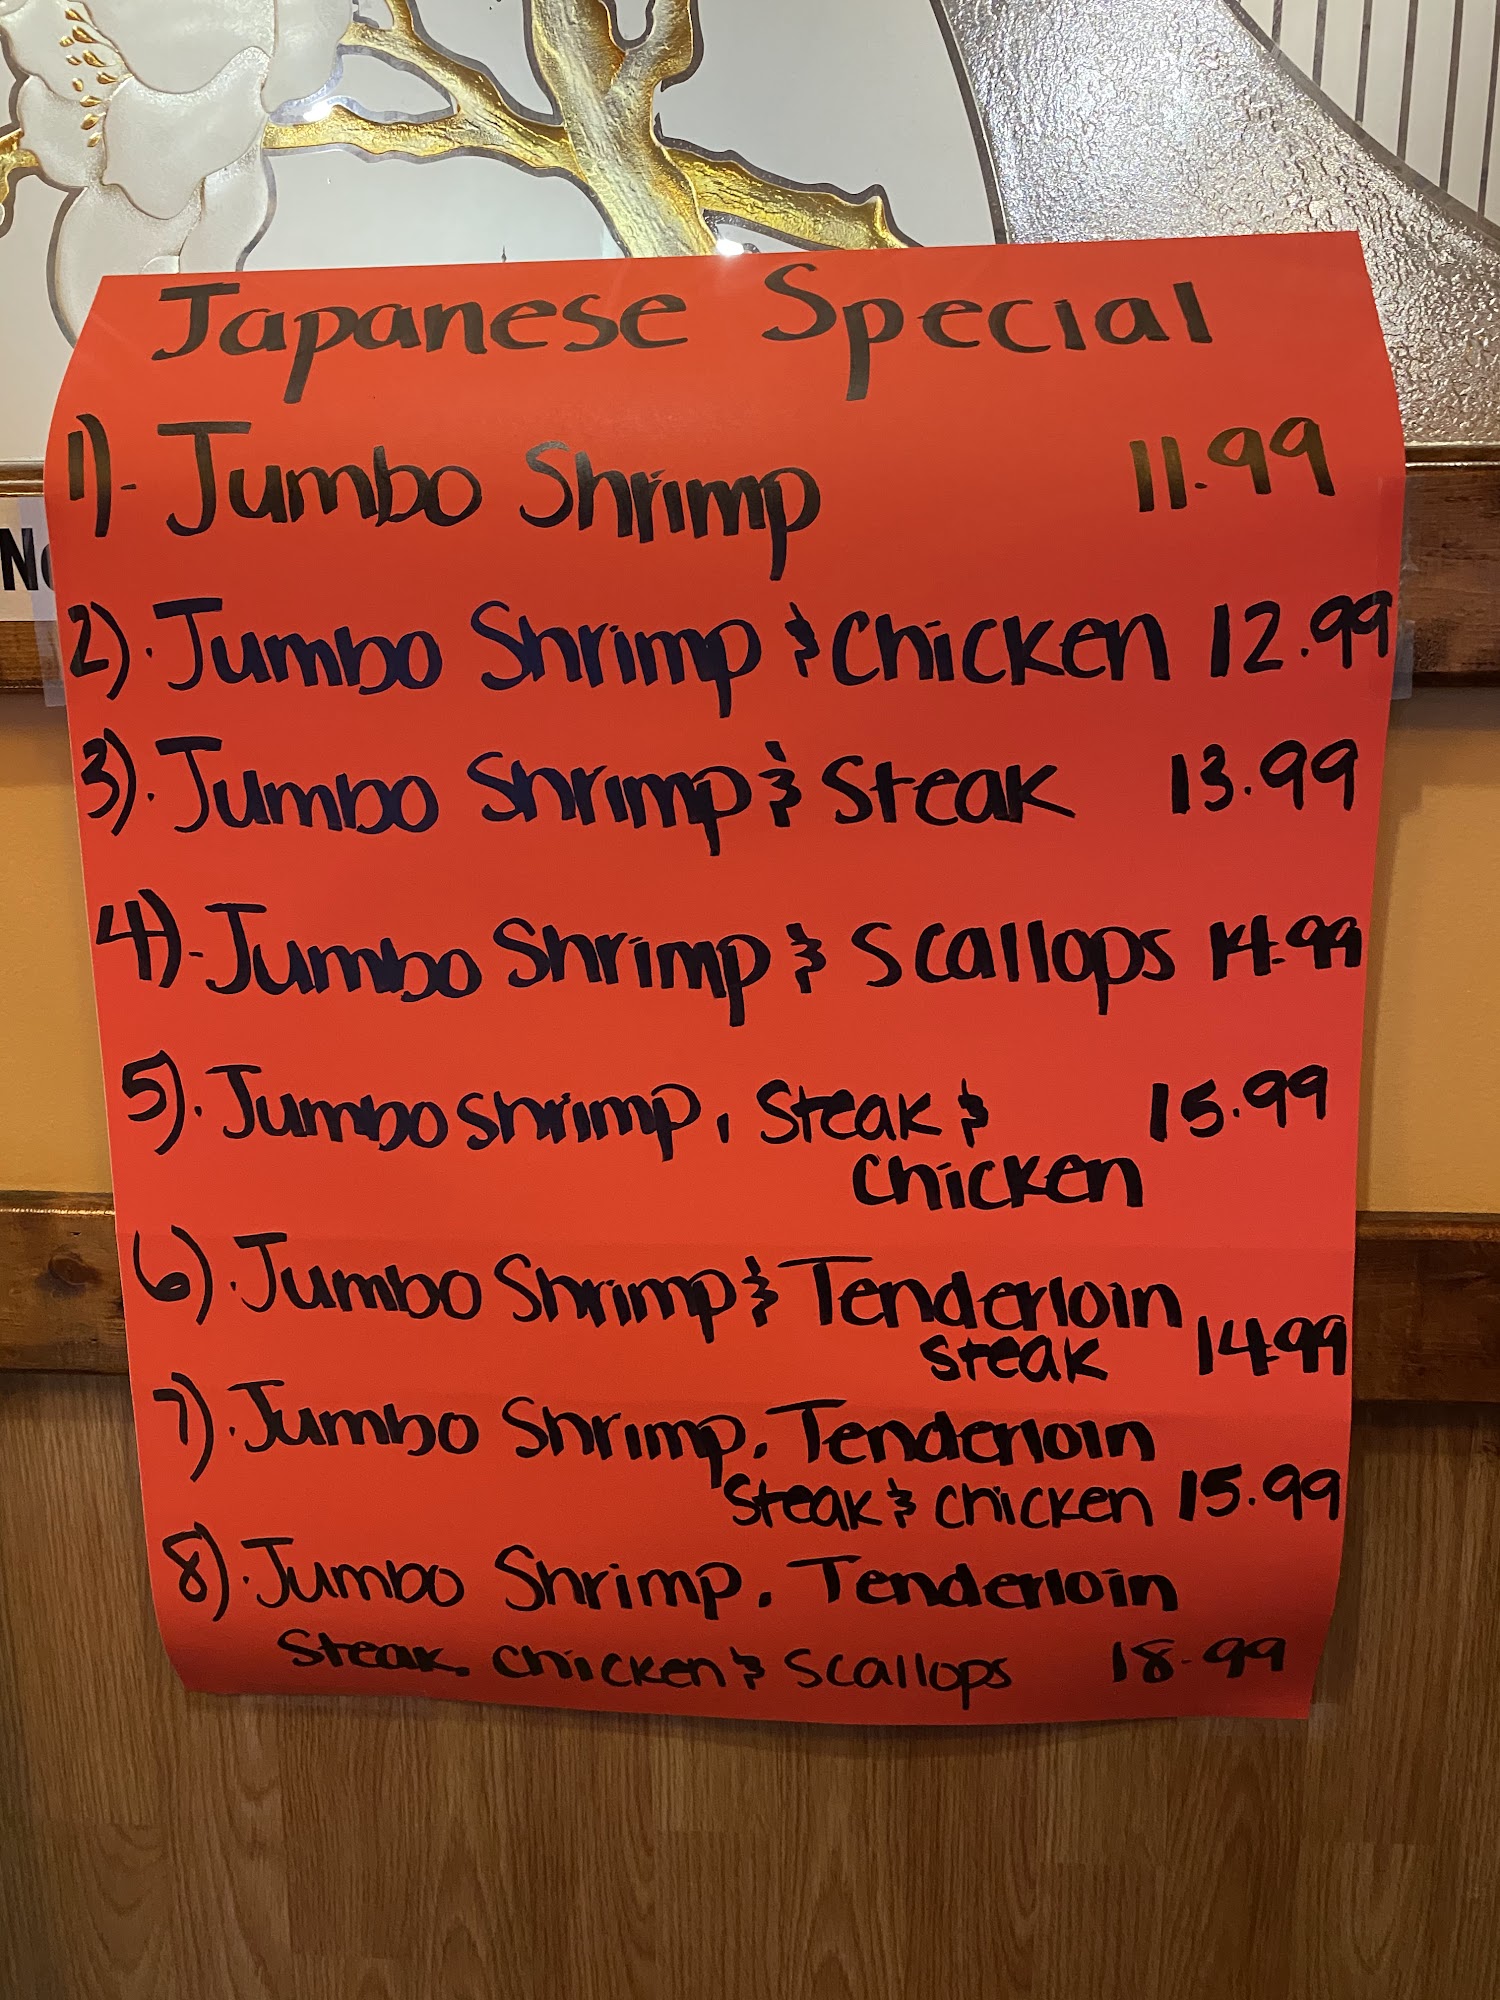 Japanese Special
1)- Jumbo Shrimp 11.99
2). Jumbo Shrimp & Chicken 12.99
3). Jumbo Shrimp & Steak 13.99
4)- Jumbo Shrimp & Scallops 14.99
5). Jumbo shrimp, Steak & 15.99
Chicken
6). Jumbo Shrimp & Tenderloin
Steak 1499
7). Jumbo Shrimp. Tenderloin
Steak & Chicken 15.99
8). Jumbo Shrimp. Tenderloin
Steak. Chicken & Scallops 18.99